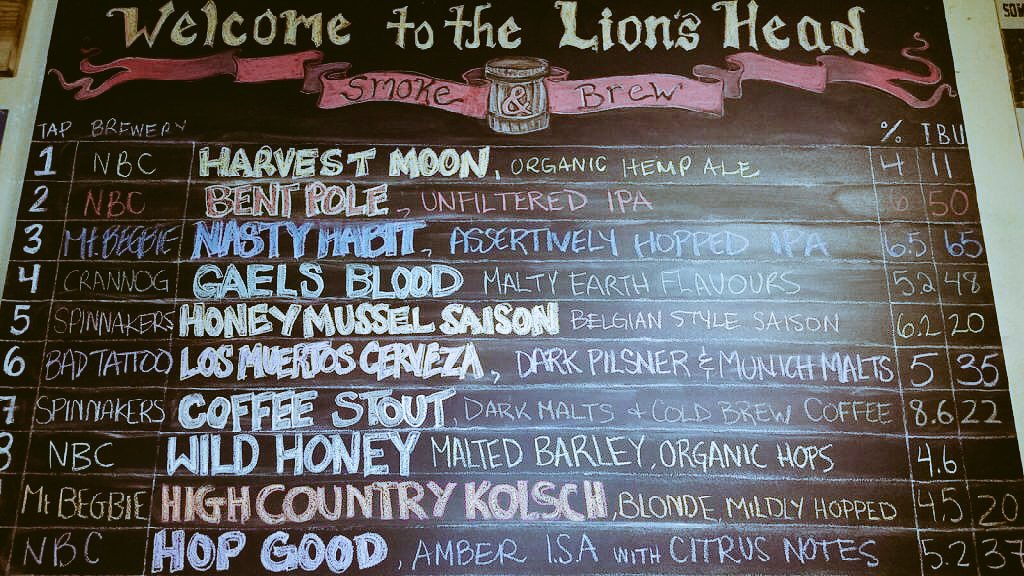 Welcome to the Lion's Head
Smoke & Brew
TAP BREWERY % IBU
1 NBC HARVEST MOON, ORGANIC HEMP ALE 4 11
2 NBC BENT POLE, UNFILTERED IPA 6 50
3 Mt. BEGBIE NASTY HABIT, ASSERTIVELY HOPPED IPA 6.5 65
4 CRANNOG GAELS BLOOD MALTY EARTH FLAVOURS 5.2 48
5 SPINNAKERS HONEY MUSSEL SAISON BELGIAN STYLE SAISON 6.2 20
6 BAD TATTOO LOS MUERTOS CERVEZA, DARK PILSNER & MUNICH MALTS 5 35
7 SPINNAKERS COFFEE STOUT, DARK MALTS & COLD BREW COFFEE 8.6 22
8 NBC WILD HONEY MALTED BARLEY, ORGANIC HOPS 4.6
Mt BEGBIE HIGH COUNTRY KOLSCH, BLONDE, MILDLY HOPPED 4.5 20
NBC HOP GOOD, AMBER I.S.A WITH CITRUS NOTES 5.2 37